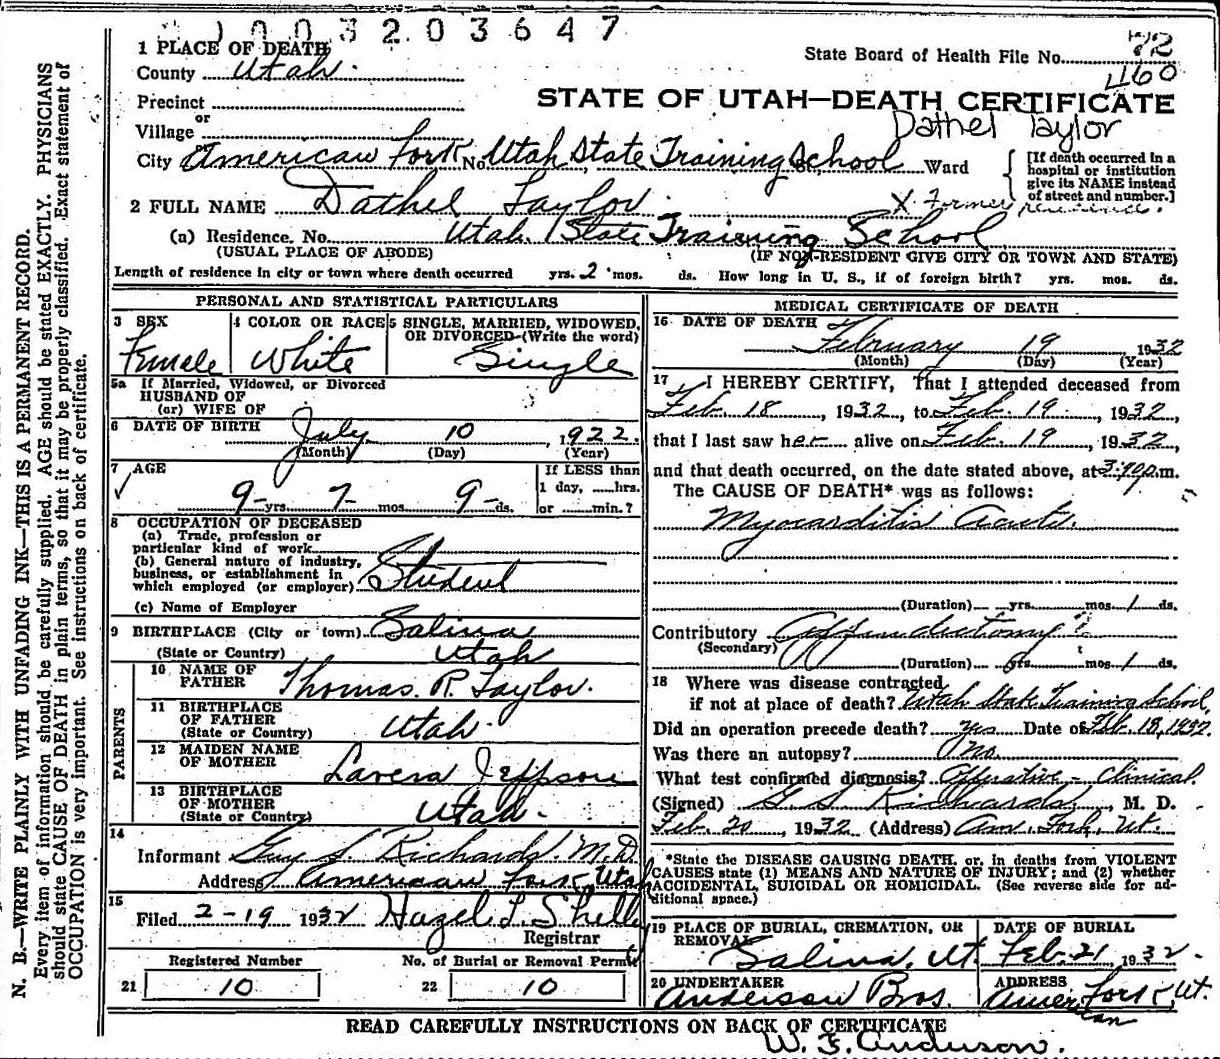 1003203647
1 PLACE OF DEATH
County Utah.
State Board of Health File No. 72
460
Precinct
or
Village
STATE OF UTAH—DEATH CERTIFICATE
Dathel Taylor
City American Fork No. Utah State Training School St., Ward
[If death occurred in a hospital or institution give its NAME instead of street and number.]
2 FULL NAME Dathel Taylor
X Former residence.
(a) Residence. No. Utah State Training School
(USUAL PLACE OF ABODE) (IF NON-RESIDENT GIVE CITY OR TOWN AND STATE)
Length of residence in city or town where death occurred yrs. 2 mos. ds. How long in U. S., if of foreign birth? yrs. mos. ds.
PERSONAL AND STATISTICAL PARTICULARS
3 SEX Female
4 COLOR OR RACE White
5 SINGLE, MARRIED, WIDOWED, OR DIVORCED (Write the word) Single
5a If Married, Widowed, or Divorced
HUSBAND OF
(or) WIFE OF
6 DATE OF BIRTH July 10, 1922
(Month) (Day) (Year)
7 AGE
9 yrs. 7 mos. 9 ds.
If LESS than 1 day, ......hrs. or ......min.?
8 OCCUPATION OF DECEASED
(a) Trade, profession or particular kind of work
(b) General nature of industry, business, or establishment in which employed (or employer) Student
(c) Name of Employer
9 BIRTHPLACE (City or town) Salina
(State or Country) Utah
PARENTS
10 NAME OF FATHER Thomas R. Taylor.
11 BIRTHPLACE OF FATHER (State or Country) Utah.
12 MAIDEN NAME OF MOTHER Lavera Jeppson
13 BIRTHPLACE OF MOTHER (State or Country) Utah.
14
Informant Guy S. Richards. M.D.
Address American Fork, Utah
15
Filed 2-19 1932 Hazel L. Shelley
Registrar
Registered Number No. of Burial or Removal Permit
21 10 22 10
MEDICAL CERTIFICATE OF DEATH
16 DATE OF DEATH February 19 1932
(Month) (Day) (Year)
17 I HEREBY CERTIFY, That I attended deceased from
Feb. 18, 1932, to Feb. 19, 1932,
that I last saw her alive on Feb. 19, 1932,
and that death occurred, on the date stated above, at p.m.
The CAUSE OF DEATH* was as follows:
Myocarditis Acute.
(Duration) yrs. mos. 1 ds.
Contributory Appendectomy
(Secondary)
(Duration) yrs. mos. 1 ds.
18 Where was disease contracted
if not at place of death? Utah State Training School.
Did an operation precede death? Yes Date of Feb. 18, 1932.
Was there an autopsy? No.
What test confirmed diagnosis? Operative - Clinical.
(Signed) G S Richards, M. D.
Feb. 20, 1932 (Address) Am. Fork, Ut.
*State the DISEASE CAUSING DEATH, or, in deaths from VIOLENT CAUSES state (1) MEANS AND NATURE OF INJURY; and (2) whether ACCIDENTAL, SUICIDAL OR HOMICIDAL. (See reverse side for additional space.)
19 PLACE OF BURIAL, CREMATION, OR REMOVAL Salina, Ut.
DATE OF BURIAL Feb. 21 1932.
20 UNDERTAKER Anderson Bros.
ADDRESS American Fork, Ut.
READ CAREFULLY INSTRUCTIONS ON BACK OF CERTIFICATE
W. E. Anderson.
N. B.—WRITE PLAINLY WITH UNFADING INK—THIS IS A PERMANENT RECORD.
Every item of information should be carefully supplied. AGE should be stated EXACTLY. PHYSICIANS
should state CAUSE OF DEATH in plain terms, so that it may be properly classified. Exact statement of
OCCUPATION is very important. See instructions on back of certificate.